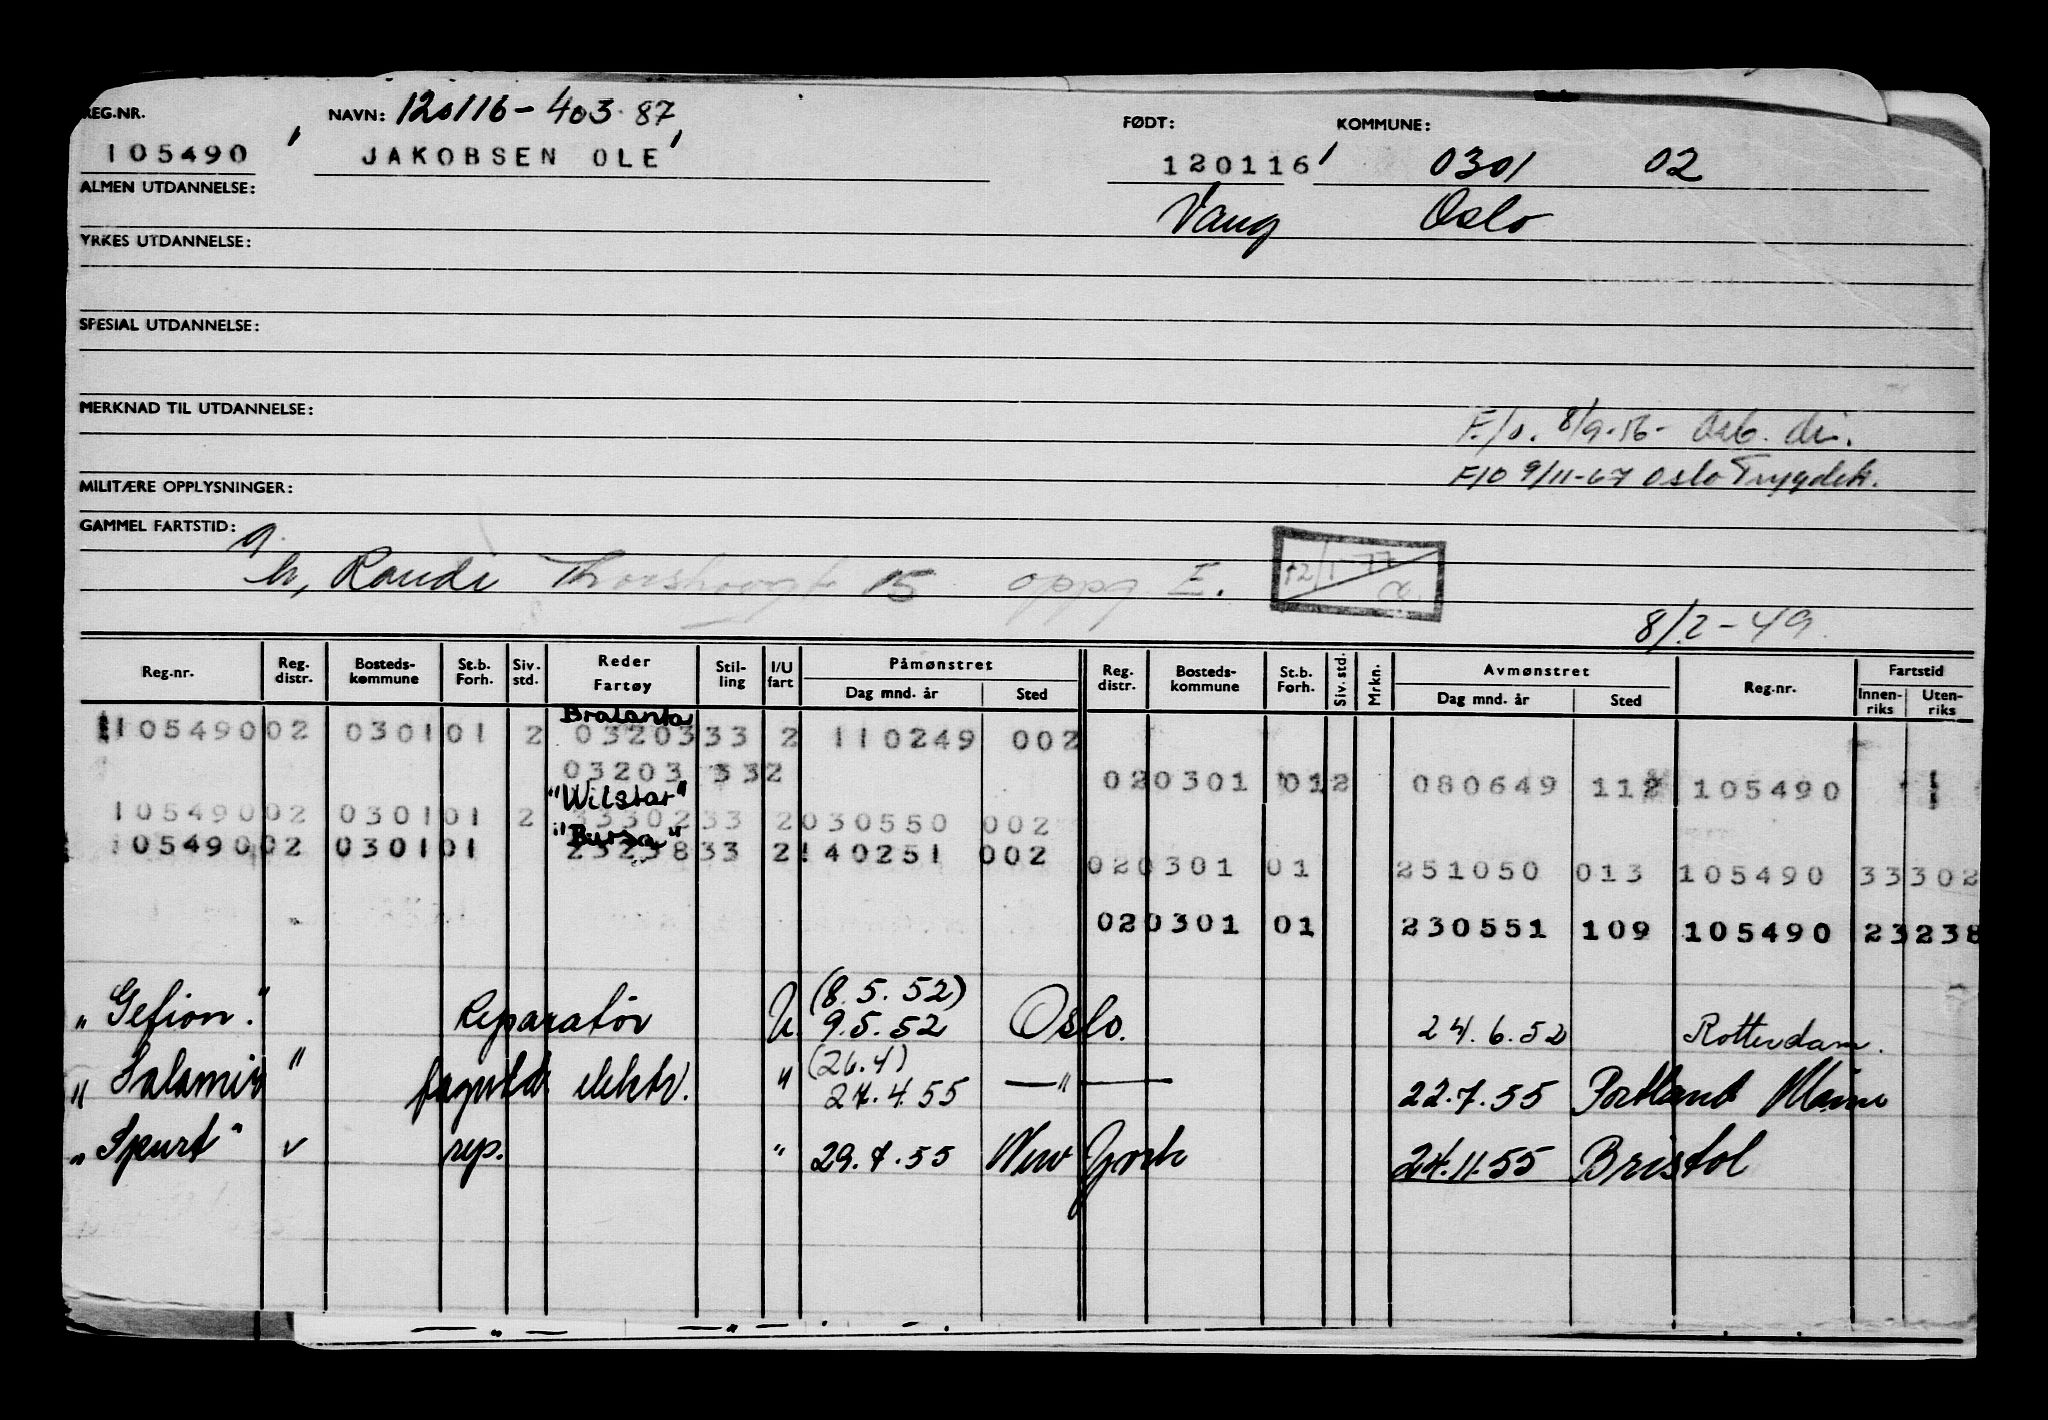 REG.NR. NAVN: 120116-403.87 FØDT: KOMMUNE:
105490 JAKOBSEN OLE 120116 0301 02
ALMEN UTDANNELSE: Vang Oslo
YRKES UTDANNELSE:
SPESIAL UTDANNELSE:
MERKNAD TIL UTDANNELSE:
F/o. 8/9-56- Osb. dir.
F/O 9/11-67 Oslo Trygdek.
MILITÆRE OPPLYSNINGER:
GAMMEL FARTSTID:
g.
h, Randi Thorshovgt 15 oppg E. 12/1-77
8/2-49
Reg.nr. Reg. distr. Bosteds- kommune St.b. Forh. Siv. std. Reder Fartøy Stil- ling I/U fart Påmønstret Dag mnd. år Sted Reg. distr. Bosteds- kommune St.b. Forh. Siv. std. Mrkn. Avmønstret Dag mnd. år Sted Reg.nr. Fartstid Innen- riks Uten- riks
Bralanta
105490 02 0301 01 2 03203 33 2 110249 002
03203 33 2 02 0301 01 2 080649 112 105490 1
"Wilstar"
105490 02 0301 01 2 33302 33 2 030550 002
"Bursa"
105490 02 0301 01 23238 33 2 140251 002
02 0301 01 251050 013 105490 33302
02 0301 01 230551 109 105490 23238
"Gefion" Reparatør U. (8.5.52) 9.5.52 Oslo. 24.6.52 Rotterdam.
"Salamis" elektr. " (26.4) 27.4.55 —"— 22.7.55 Portland Maine
"Spurt" v rep. " 29.7.55 New York 24.11.55 Bristol